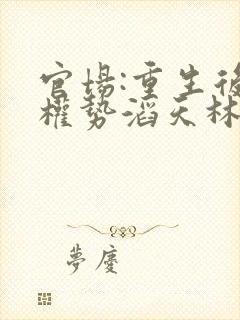 官場:重生後
權勢滔天林
夢廈